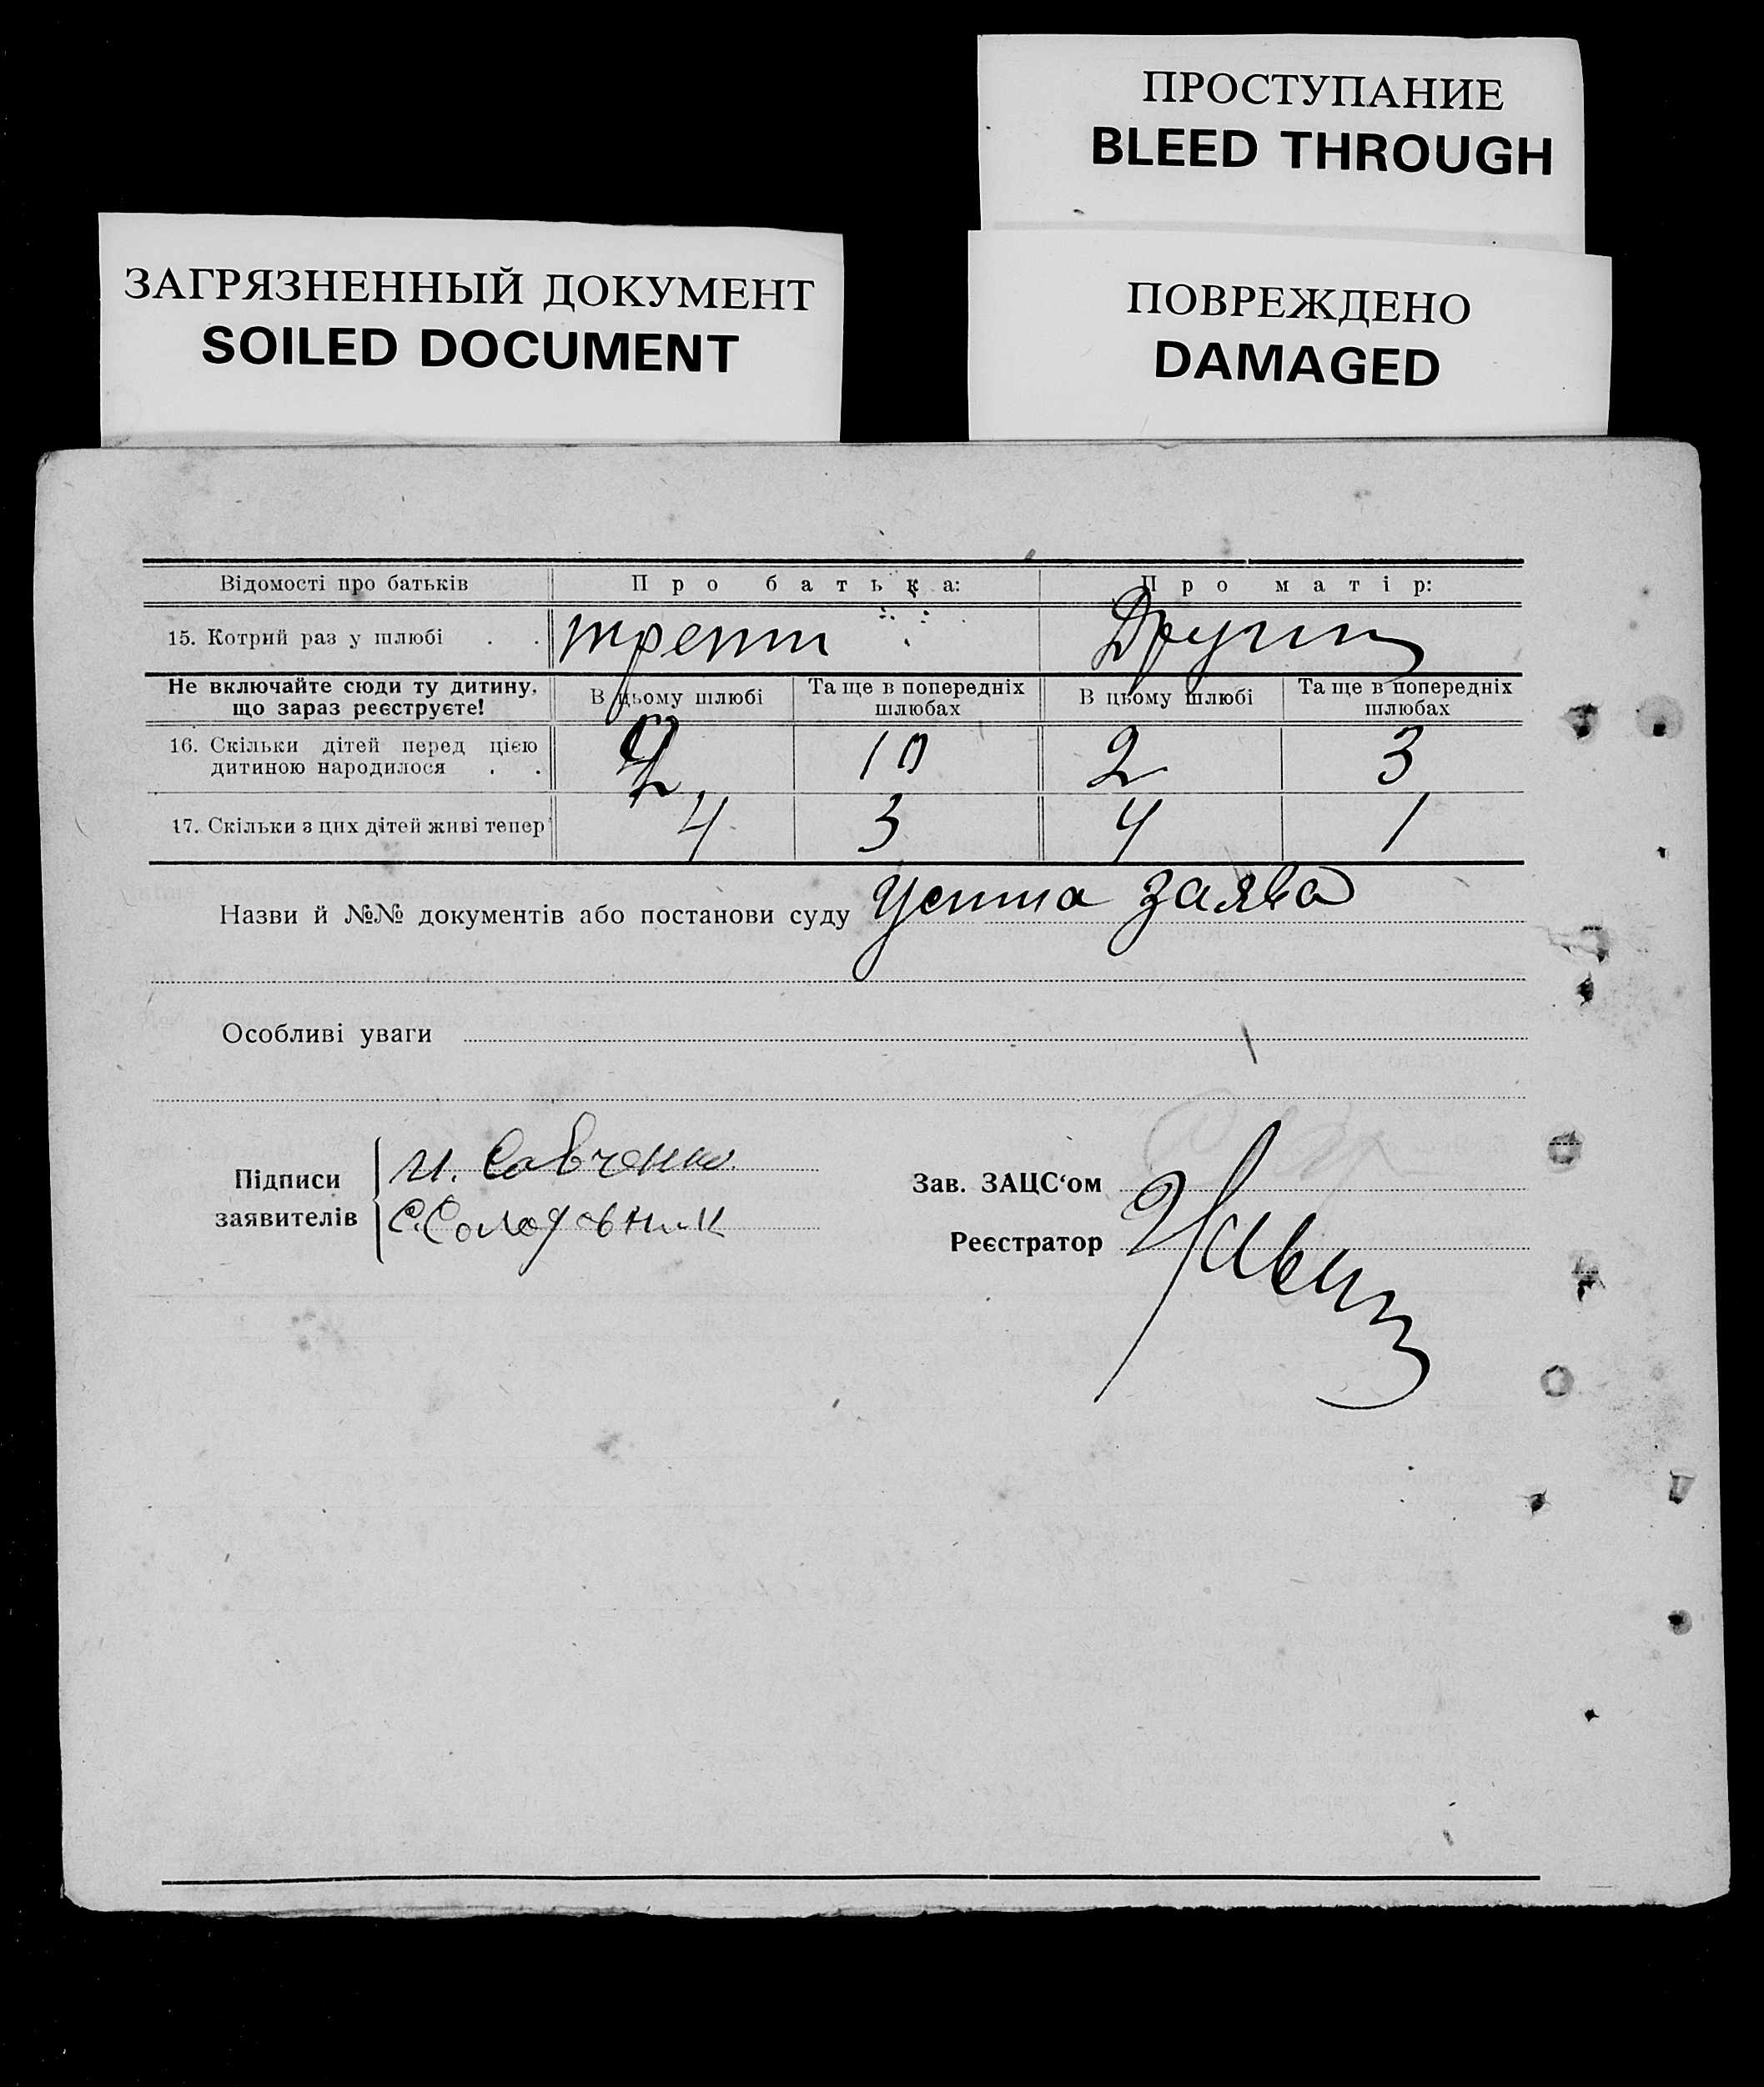 ПРОСТУПАНИЕ
BLEED THROUGH
ЗАГРЯЗНЕННЫЙ ДОКУМЕНТ
SOILED DOCUMENT
ПОВРЕЖДЕНО
DAMAGED
Відомості про батьків Про батька: Про матір:
15. Котрий раз у шлюбі . . трети Други
Не включайте сюди ту дитину, що зараз реєструєте! В цьому шлюбі Та ще в попередніх шлюбах В цьому шлюбі Та ще в попередніх шлюбах
16. Скільки дітей перед цією
дитиною народилося . . 2 10 2 3
17. Скільки з цих дітей живі тепер 4 3 4 1
Назви й №№ документів або постанови суду Устна заява
Особливі уваги
Підписи заявителів И. Савченко
С. Солодовник
Зав. ЗАЦС'ом
Реєстратор